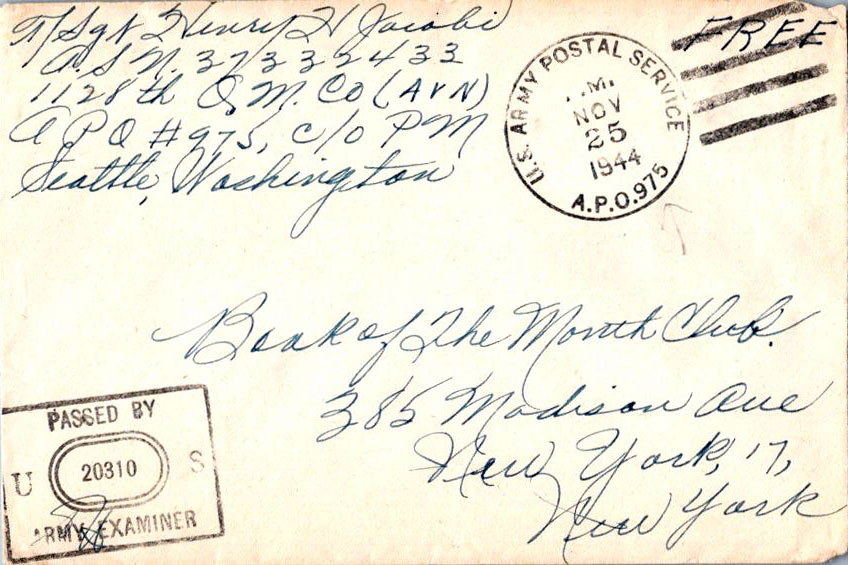 T/Sgt Henry H Jacobi
A.S.N. 37332433
1128th Q.M. Co (AVN)
A.P.O #975, c/o PM
Seattle, Washington
U.S. ARMY POSTAL SERVICE
.M.
NOV
25
1944
A.P.O. 975
FREE
Book of The Month Club.
385 Madison Ave
New York, 17,
New York
PASSED BY
U 20310 S
ARMY EXAMINER